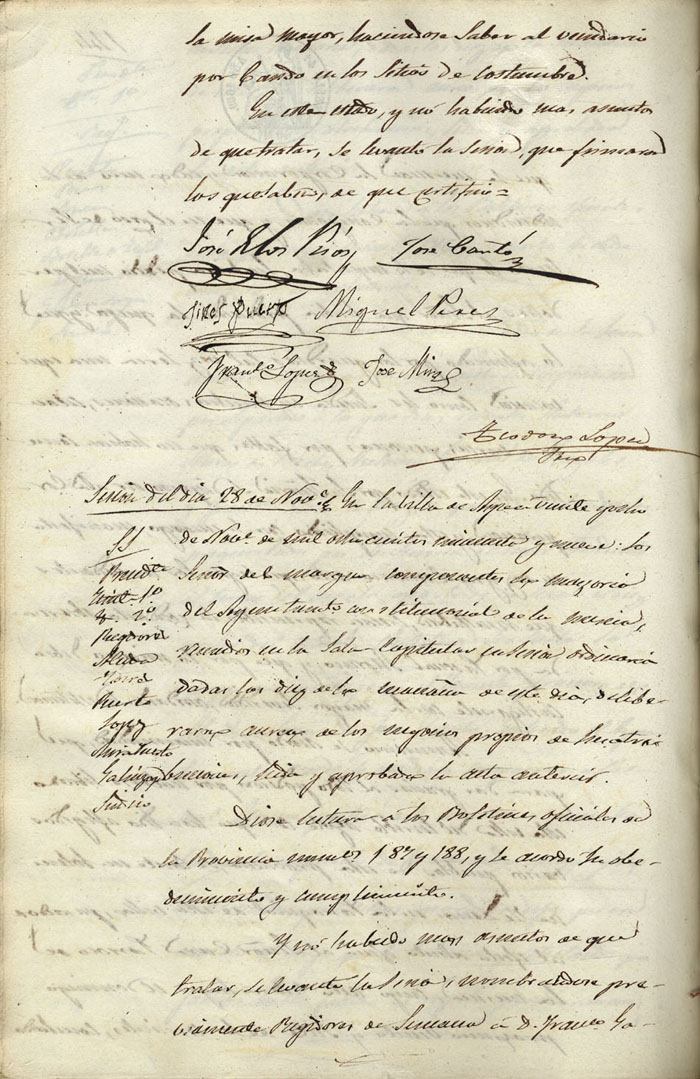 la misa mayor, haciendose saber al vecindario
por bando en los sitios de costumbre.
En este estado, y nó habiendo mas asuntos
de que tratar, se levantó la sesion, que firmaron
los que saben, de que certifico=
José Pérez José Cantó
Jines Puerto Miguel Perez
Franco Lopez Jose Mira
Teodoro Lopez
Srio
Sesion del dia 28 de Nove. En la villa de Aspe a veinte y ocho
de Nove. de mil ochocientos cincuenta y nueve: los
Señores del margen componentes la mayoria
del Ayuntamto constitucional de la misma,
reunidos en la Sala Capitular en sesion ordinaria
dadas las diez de la mañana de este dia, delibe-
raron acerca de los negocios propios de sus atri-
buciones, leida y aprobada la acta anterior.
SS
Presidte
Tente 1º
Y 2º
Regidores
Puerto
Lopez
Sindico
Diose lectura a los Boletines oficiales de
la Provincia numeros 187 y 188, y se acordó su obe-
decimiento y cumplimiento.
Y nó habiendo mas asuntos de que
tratar, se levantó la sesion, nombrandose pre-
viamente Regidores de Semana á D. Franco Ga-